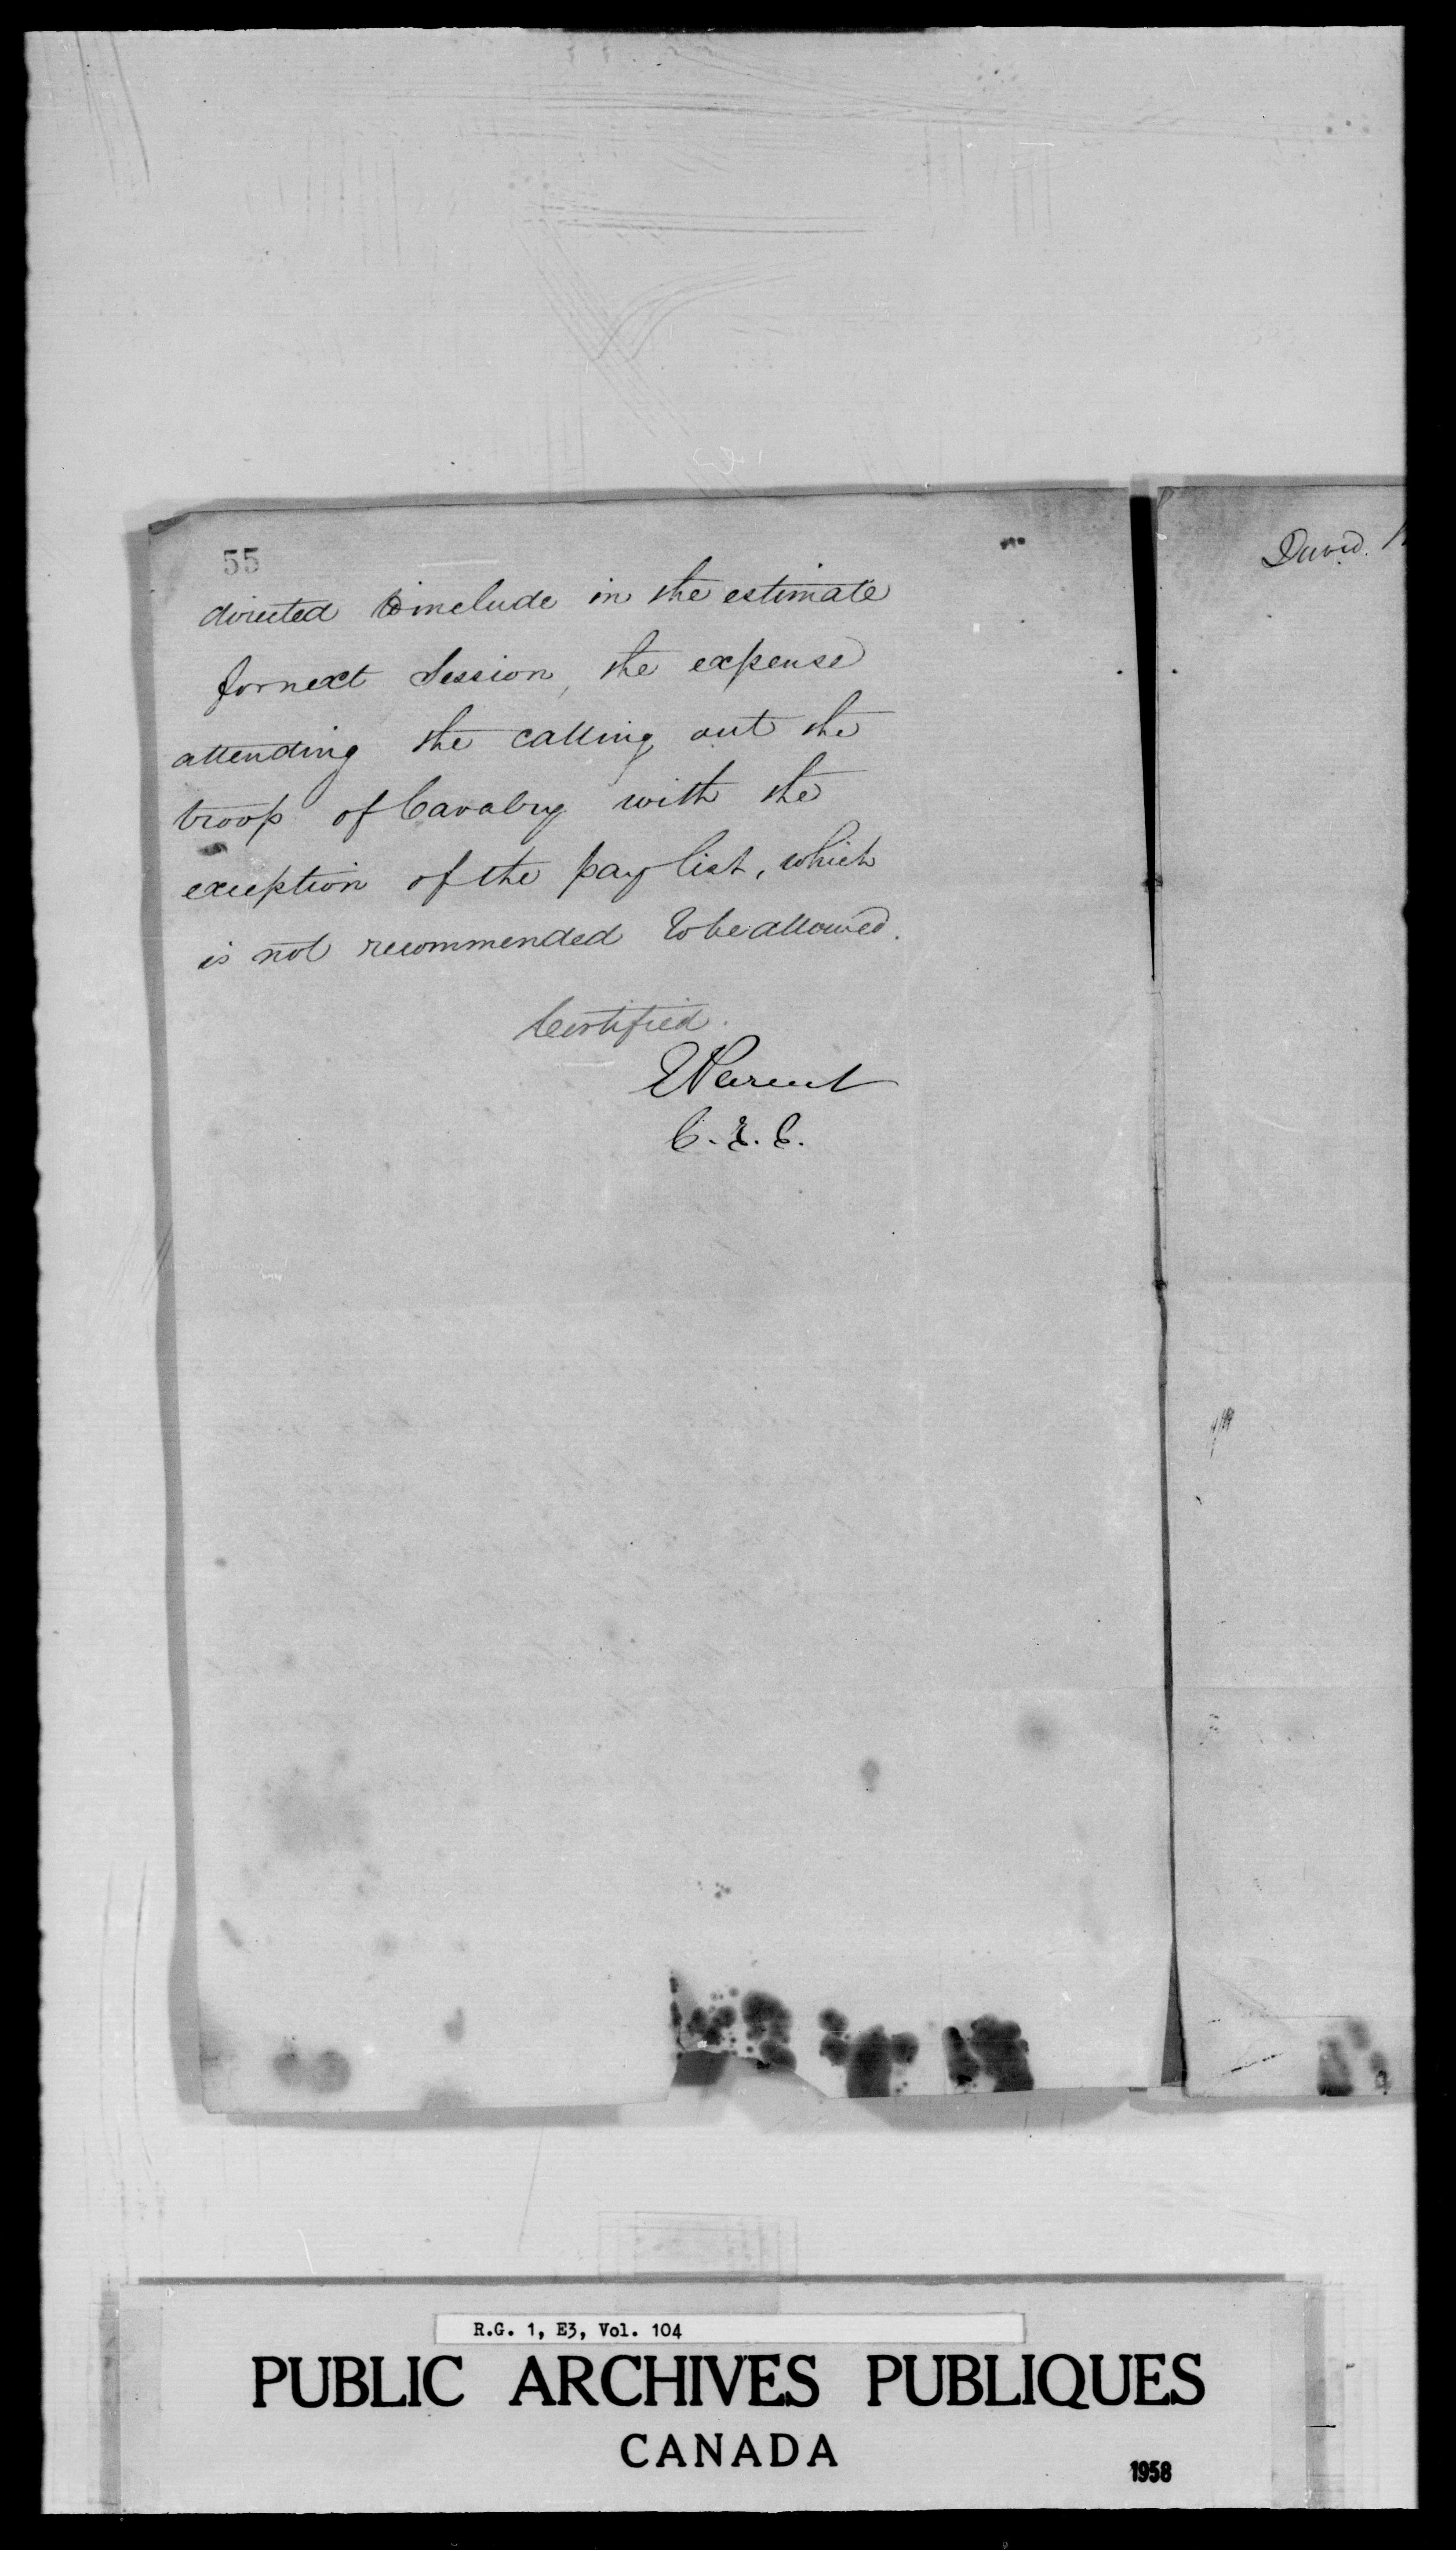 55
directed to include in the estimate
for next Session, the expense
attending the calling out the
troop of Cavalry with the
exception of the pay list, which
is not recommended to be allowed.
Certified.
E Parent
C. E. C.
David.
R.G. 1, E3, Vol. 104
PUBLIC ARCHIVES PUBLIQUES
CANADA
1958